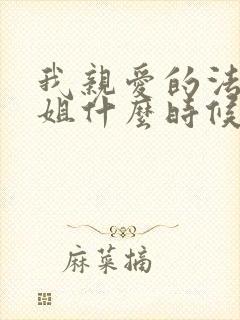 我親愛的法
姐什麼時候
麻菜摘